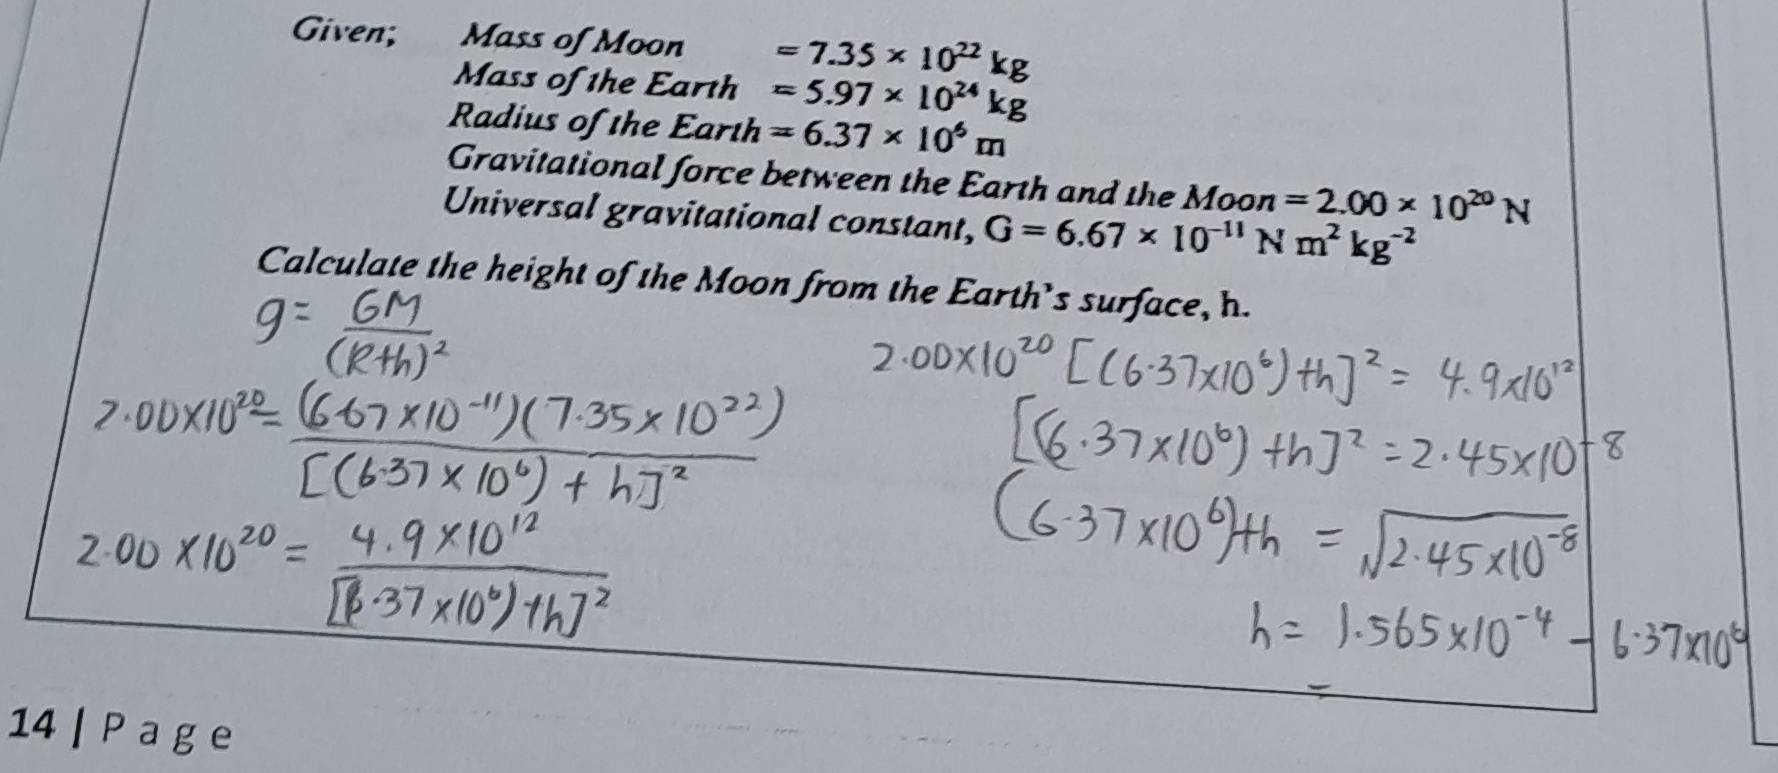 Given; Mass of Moon = 7.35 × 10²² kg
Mass of the Earth = 5.97 × 10²⁴ kg
Radius of the Earth = 6.37 × 10⁶ m
Gravitational force between the Earth and the Moon = 2.00 × 10²⁰ N
Universal gravitational constant, G = 6.67 × 10⁻¹¹ N m² kg⁻²
Calculate the height of the Moon from the Earth's surface, h.
g = GM / (R+h)²
2.00×10²⁰ = (6.67×10⁻¹¹)(7.35×10²²) / [(6.37×10⁶) + h]²
2.00×10²⁰ = 4.9×10¹² / [6.37×10⁶)+h]²
2.00×10²⁰ [(6.37×10⁶)+h]² = 4.9×10¹²
[(6.37×10⁶)+h]² = 2.45×10⁻⁸
(6.37×10⁶)+h = √2.45×10⁻⁸
h = 1.565×10⁻⁴ - 6.37×10⁶
14 | Page